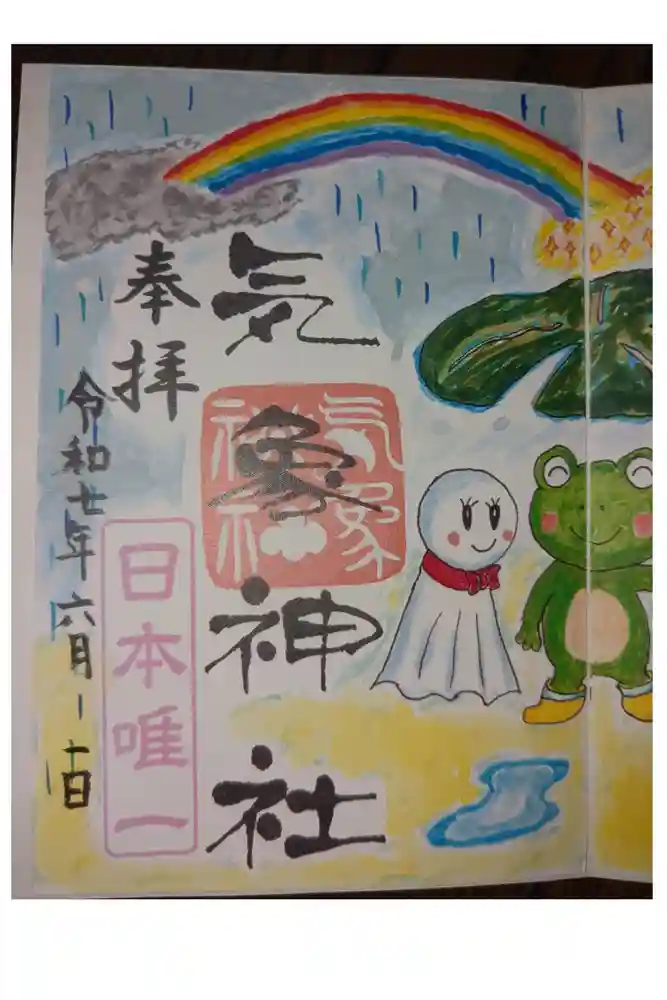 気象神社
気象
神社
奉拝
日本唯一
令和七年六月